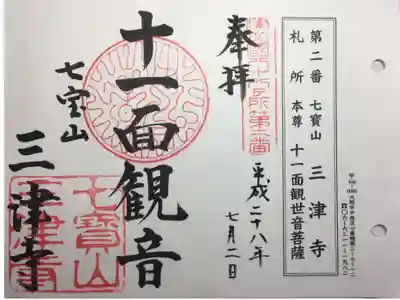 第二番 七寳山 三津寺
札所 本尊 十一面観世音菩薩
奉拝
平成二十八年
七月二日
十一面観音
七宝山
三津寺
七寳山
三津寺